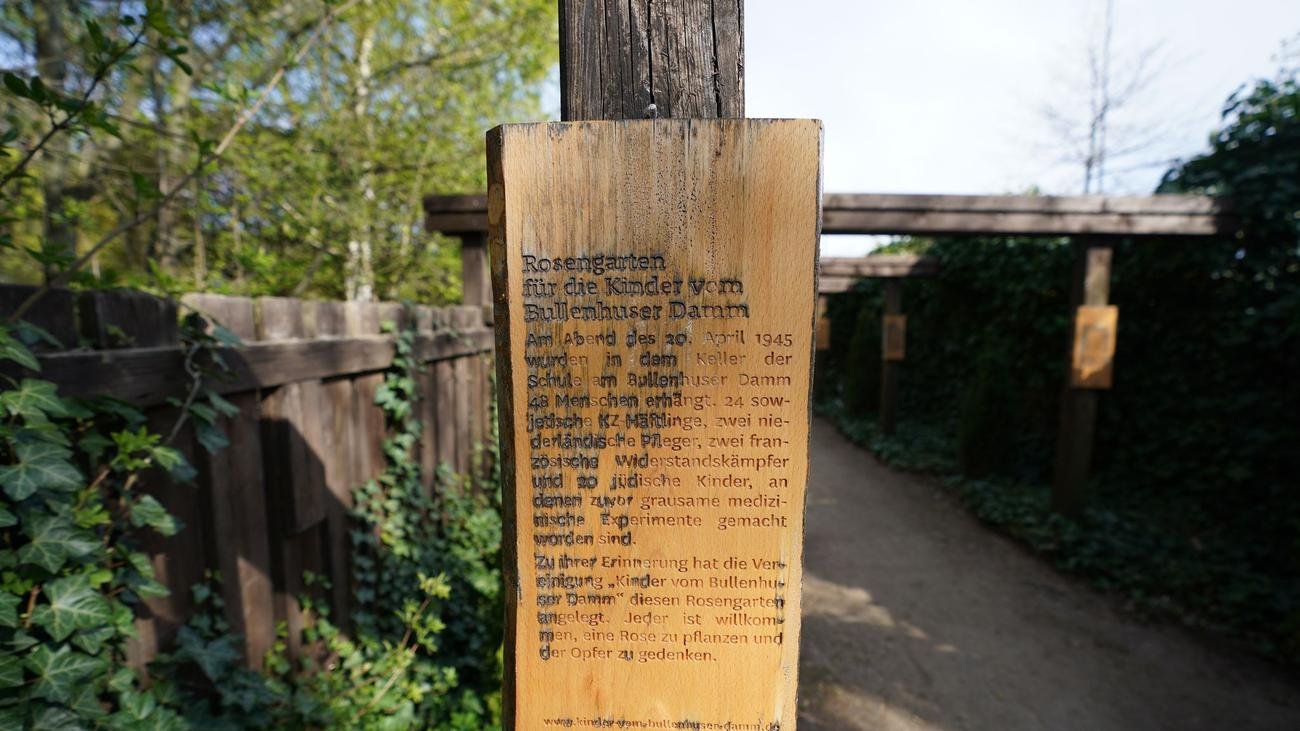 Rosengarten
für die Kinder vom
Bullenhuser Damm
Am Abend des 20. April 1945
wurden in dem Keller der
Schule am Bullenhuser Damm
48 Menschen erhängt. 24 sow-
jetische KZ-Häftlinge, zwei nie-
derländische Pfleger, zwei fran-
zösische Widerstandskämpfer
und 20 jüdische Kinder, an
denen zuvor grausame medizi-
nische Experimente gemacht
worden sind.
Zu ihrer Erinnerung hat die Ver-
einigung „Kinder vom Bullenhu-
ser Damm“ diesen Rosengarten
angelegt. Jeder ist willkom-
men, eine Rose zu pflanzen und
der Opfer zu gedenken.
www.kinder-vom-bullenhuser-damm.de